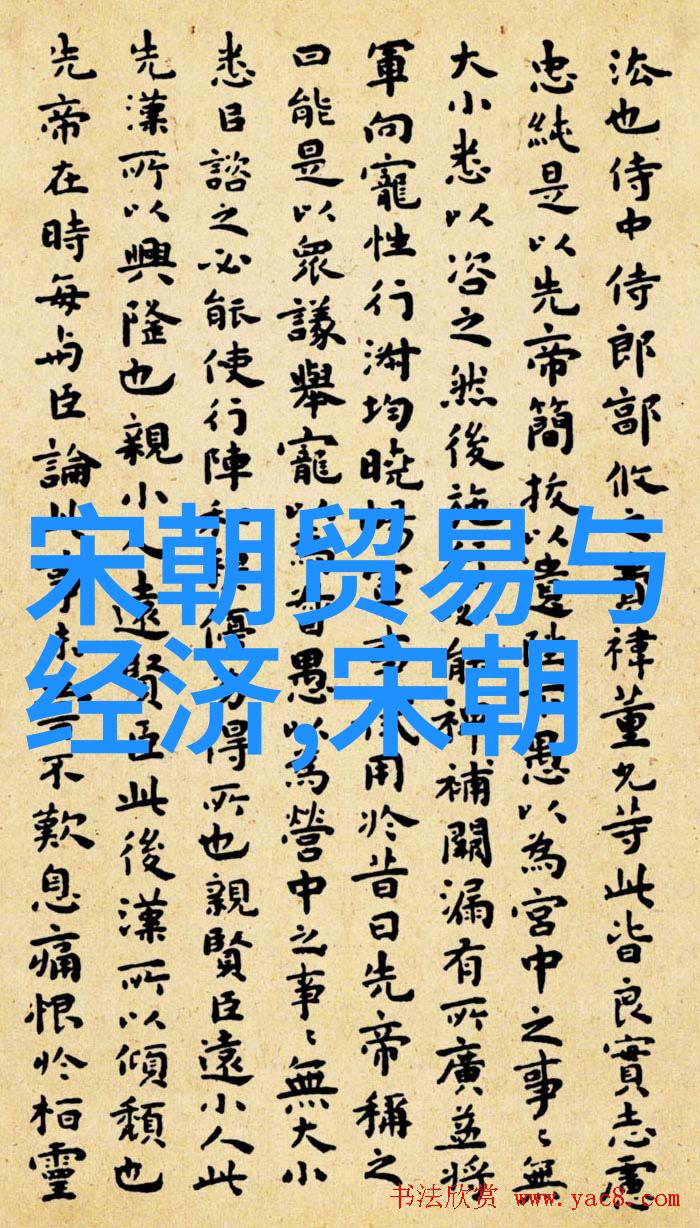 法也侍中侍郎郭攸之費禕董允等此皆良實志慮
忠純是以先帝簡拔以遺陛下愚以為宮中之事〻無
大小悉以咨之然後施行必能裨補闕漏有所廣益將
軍向寵性行淑均曉暢軍事試用於昔日先帝稱之
曰能是以眾議舉寵以為督愚以為營中之事〻無大小
悉以諮之必能使行陣和穆優劣得所也親賢臣遠小人此
先漢所以興隆也親小人遠賢臣此後漢所以傾頹也
先帝在時每與臣論此事未嘗不歎息痛恨於桓靈
宋朝贸易与
经济,宋朝
书法欣赏 www.yac8.com